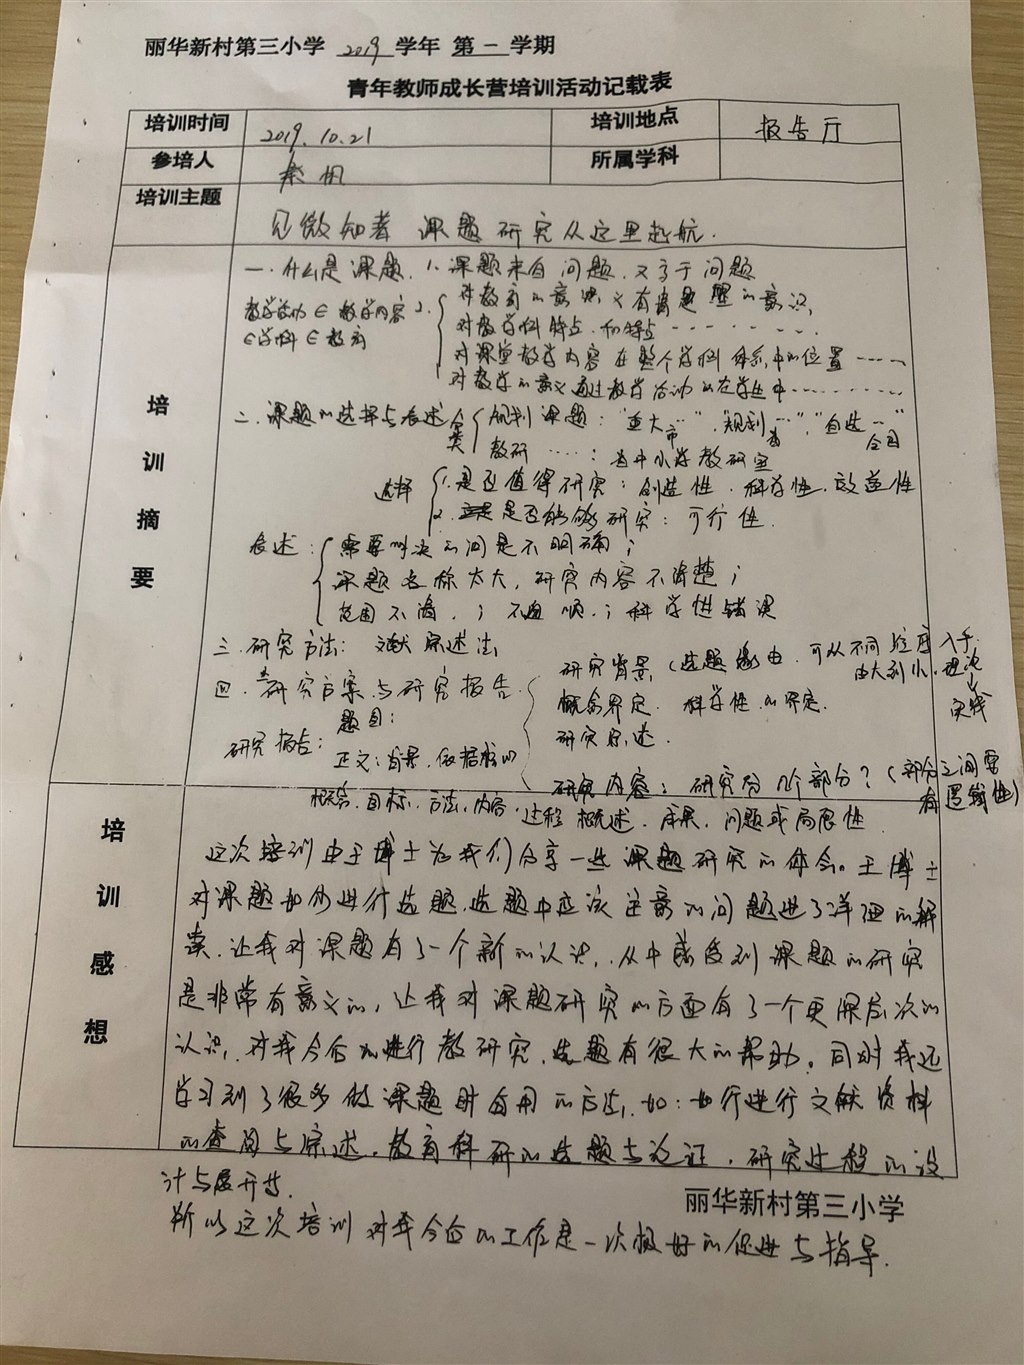 丽华新村第三小学 2019 学年 第一 学期
青年教师成长营培训活动记载表
培训时间 2019.10.21 培训地点 报告厅
参培人 所属学科
培训主题 见微知著 课题研究从这里起航.
培训摘要
一.什么是课题. 1.课题来自问题.又 于问题
教学活动∈教学内容 2. 对教育的意识,又有 的意识,
∈学科∈教育 对教学学科特点.和特点 - - - - - -
对课堂教学内容在整个学科体系中的位置 ----
对教学的意义通过教学活动 在学生中------
二.课题的选择与表述 分类 规划课题:“重大…”.“规划…”,“自选…”
市 省 全国
教研……:省中小学教研室
选择 1.是否值得研究:创造性.科学性.效益性
2.是否能够研究:可行性.
表述: 需要解决的问题不明确;
课题名称太大,研究内容不清楚;
范围不清.;不通顺.;科学性错误
三.研究方法: 文献综述法
四.研究方案与研究报告. 研究背景(选题缘由.可从不同 入手.
由大到小.理论
↓
实践
题目: 概念界定. 科学性的界定.
研究报告: 研究综述.
正文:背景.依据 的 研究内容:研究分几个部分?(部分之间要
有逻辑性)
概念.目标.方法.内容.过程概述.成果.问题或局限性
培训感想
这次培训由王博士为我们分享一些课题研究的体会。王博士
对课题如何进行选题.选题中应该注意的问题进了详细的解
读.让我对课题有了一个新的认识,.从中感受到课题的研究
是非常有意义的,让我对课题研究的方面有了一个更深层次的
认识,对我今后 进行教研究.选题有很大的帮助。同时我还
学习到了很多做课题时有用的方法,如:如何进行文献资料
的查阅与综述.教育科研的选题与论证.研究过程的设
计与展开等.
丽华新村第三小学
所以这次培训对我今后的工作是一次极好的促进与指导.